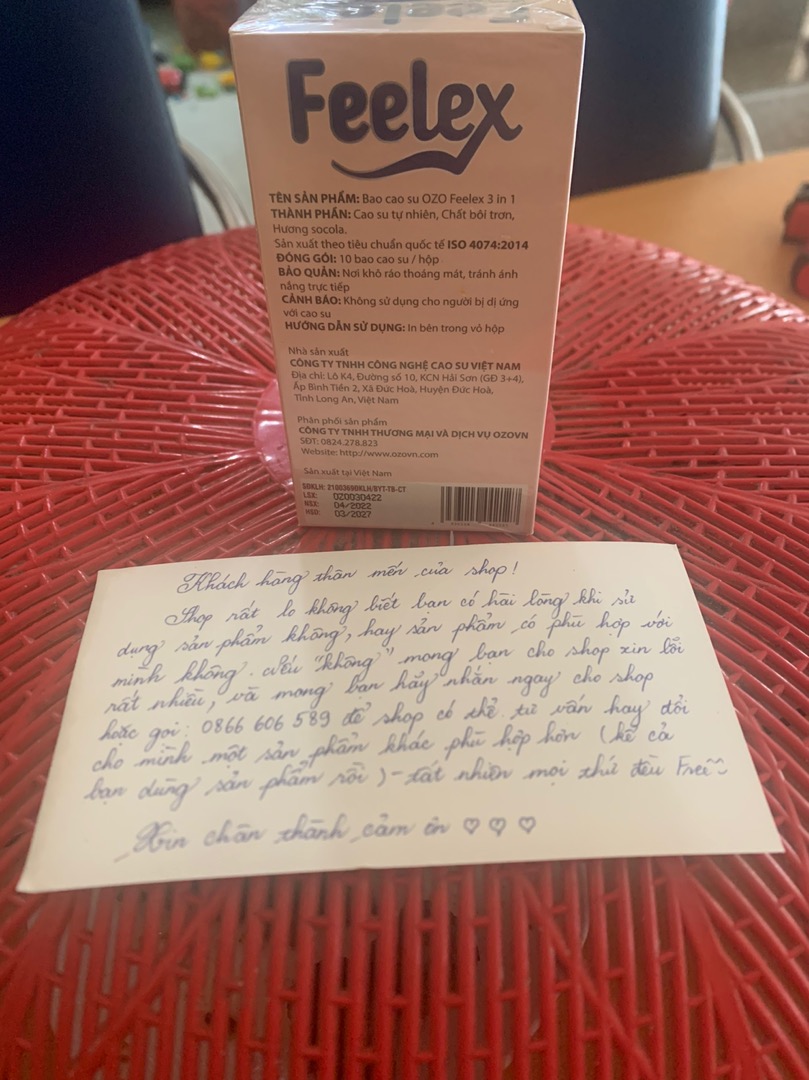 Feelex
TÊN SẢN PHẨM: Bao cao su OZO Feelex 3 in 1
THÀNH PHẦN: Cao su tự nhiên, Chất bôi trơn,
Hương socola.
Sản xuất theo tiêu chuẩn quốc tế ISO 4074:2014
ĐÓNG GÓI: 10 bao cao su / hộp
BẢO QUẢN: Nơi khô ráo thoáng mát, tránh ánh
nắng trực tiếp
CẢNH BÁO: Không sử dụng cho người bị dị ứng
với cao su
HƯỚNG DẪN SỬ DỤNG: In bên trong vỏ hộp
Nhà sản xuất
CÔNG TY TNHH CÔNG NGHỆ CAO SU VIỆT NAM
Địa chỉ: Lô K4, Đường số 10, KCN Hải Sơn (GĐ 3+4),
Ấp Bình Tiền 2, Xã Đức Hoà, Huyện Đức Hoà,
Tỉnh Long An, Việt Nam
Phân phối sản phẩm
CÔNG TY TNHH THƯƠNG MẠI VÀ DỊCH VỤ OZOVN
SĐT: 0824.278.823
Website: http://www.ozovn.com
Sản xuất tại Việt Nam
SĐKLH: 2100369ĐKLH/BYT-TB-CT
LSX: OZ0030422
NSX: 04/2022
HSD: 03/2027
Khách hàng thân mến của shop!
Shop rất lo không biết bạn có hài lòng khi sử
dụng sản phẩm không, hay sản phẩm có phù hợp với
mình không. Nếu "không" mong bạn cho shop xin lỗi
rất nhiều, và mong bạn hãy nhắn ngay cho shop
hoặc gọi: 0866 606 589 để shop có thể tư vấn hay đổi
cho mình một sản phẩm khác phù hợp hơn (kể cả
bạn dùng sản phẩm rồi) - tất nhiên mọi thứ đều Free ~
Xin chân thành cảm ơn ♡ ♡ ♡